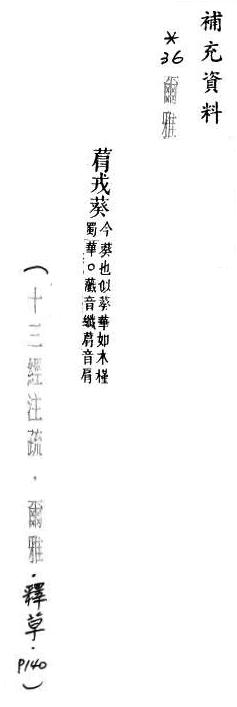 補充資料
*36 爾雅
菺戎葵
今葵也似葵華如木槿
蜀華。虃音纖菺音肩
（十三經注疏・爾雅・釋草・P140）